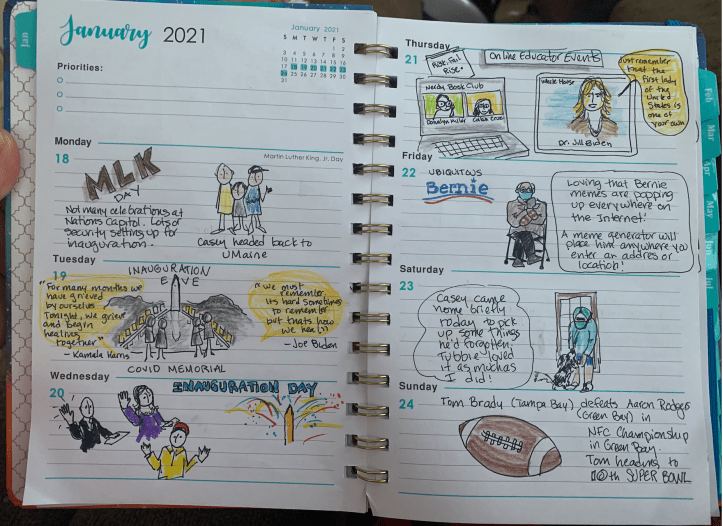 January 2021
January 2021
S M T W T F S
1 2
3 4 5 6 7 8 9
10 11 12 13 14 15 16
17 18 19 20 21 22 23
24 25 26 27 28 29 30
31
Priorities:
Monday
18
Martin Luther King, Jr. Day
MLK
DAY
Not many celebrations at
Nations Capitol. Lots of
security setting up for
inauguration.
Casey headed back to
UMaine
Tuesday
19
INAUGURATION
EVE
"For many months we
have grieved
by ourselves
Tonight, we grieve
and begin
healing
together"
- Kamala Harris
"We must
remember
its hard sometimes
to remember
but thats how
we heal."
- Joe Biden
COVID MEMORIAL
Wednesday
20
INAUGURATION DAY
Thursday
21
Online Educator Events
Risk. Fail.
Rise.
Nerdy Book Club
Donalyn Miller
White House
Dr. Jill Biden
Just remember
that the
first lady
of the
United
States is
one of
your own
Friday
22
UBIQUITOUS
Bernie
Loving that Bernie
memes are popping
up everywhere on
the Internet!
A meme generator will
place him anywhere you
enter an addres or
location!
Saturday
23
Casey came
home briefly
today to pick
up some things
he'd forgotten.
Tubbie loved
it as much as
I did!
Sunday
24
Tom Brady (Tampa Bay) defeats Aaron Rodgers
(Green Bay) in
NFC Championship
in Green Bay.
Tom heading to
10th SUPER BOWL
Jan
Feb
Mar
Apr
May
Jun
Jul